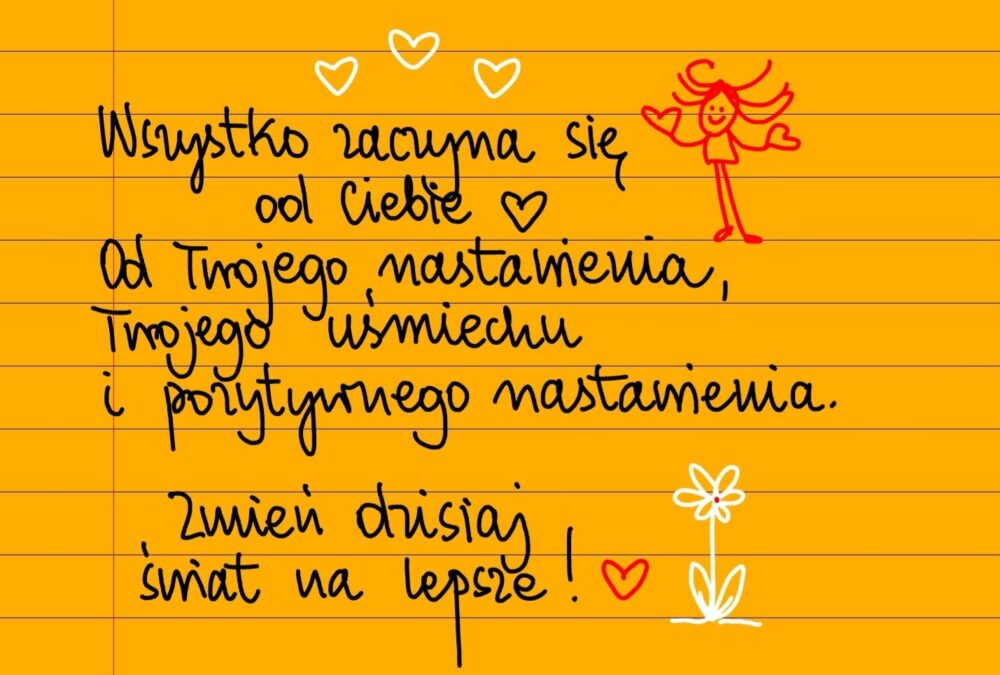 Wszystko zaczyna się
od Ciebie
Od Twojego nastawienia,
Twojego uśmiechu
i pozytywnego nastawienia.
Zmień dzisiaj
świat na lepsze!